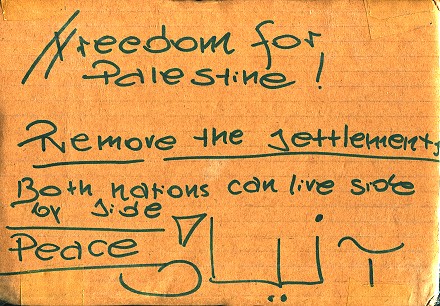 Freedom for
Palestine!
Remove the settlements
Both nations can live side
by side
Peace